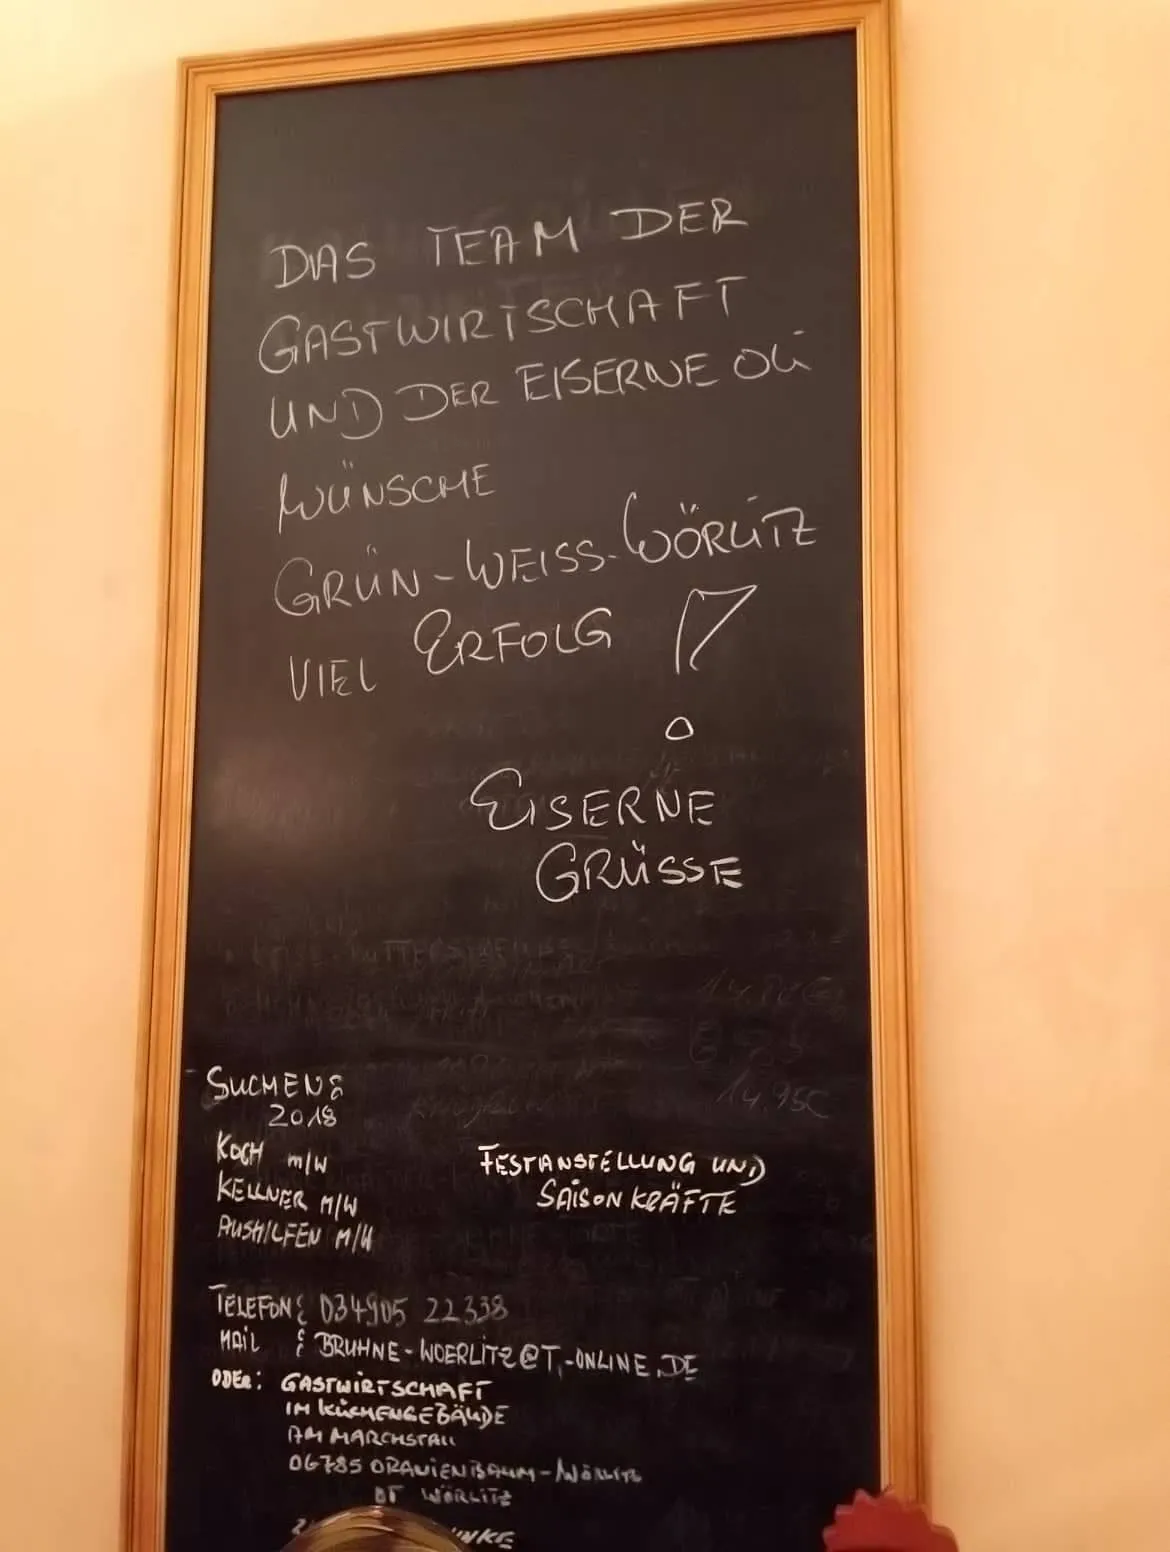 DAS TEAM DER
GASTWIRTSCHAFT
UND DER EISERNE OLI
WÜNSCHE
GRÜN-WEISS-WÖRLITZ
VIEL ERFOLG !
EISERNE
GRÜSSE
SUCHEN:
2018
KOCH m/W
KELLNER M/W
AUSHILFEN M/W
FESTANSTELLUNG UND
SAISONKRÄFTE
TELEFON: 034905 22338
MAIL : BRUHNE-WOERLITZ@T-ONLINE.DE
ODER: GASTWIRTSCHAFT
IM KÜCHENGEBÄUDE
AM MARCHSTALL
06785 ORANIENBAUM-WÖRLITZ
OT WÖRLITZ
14.95€